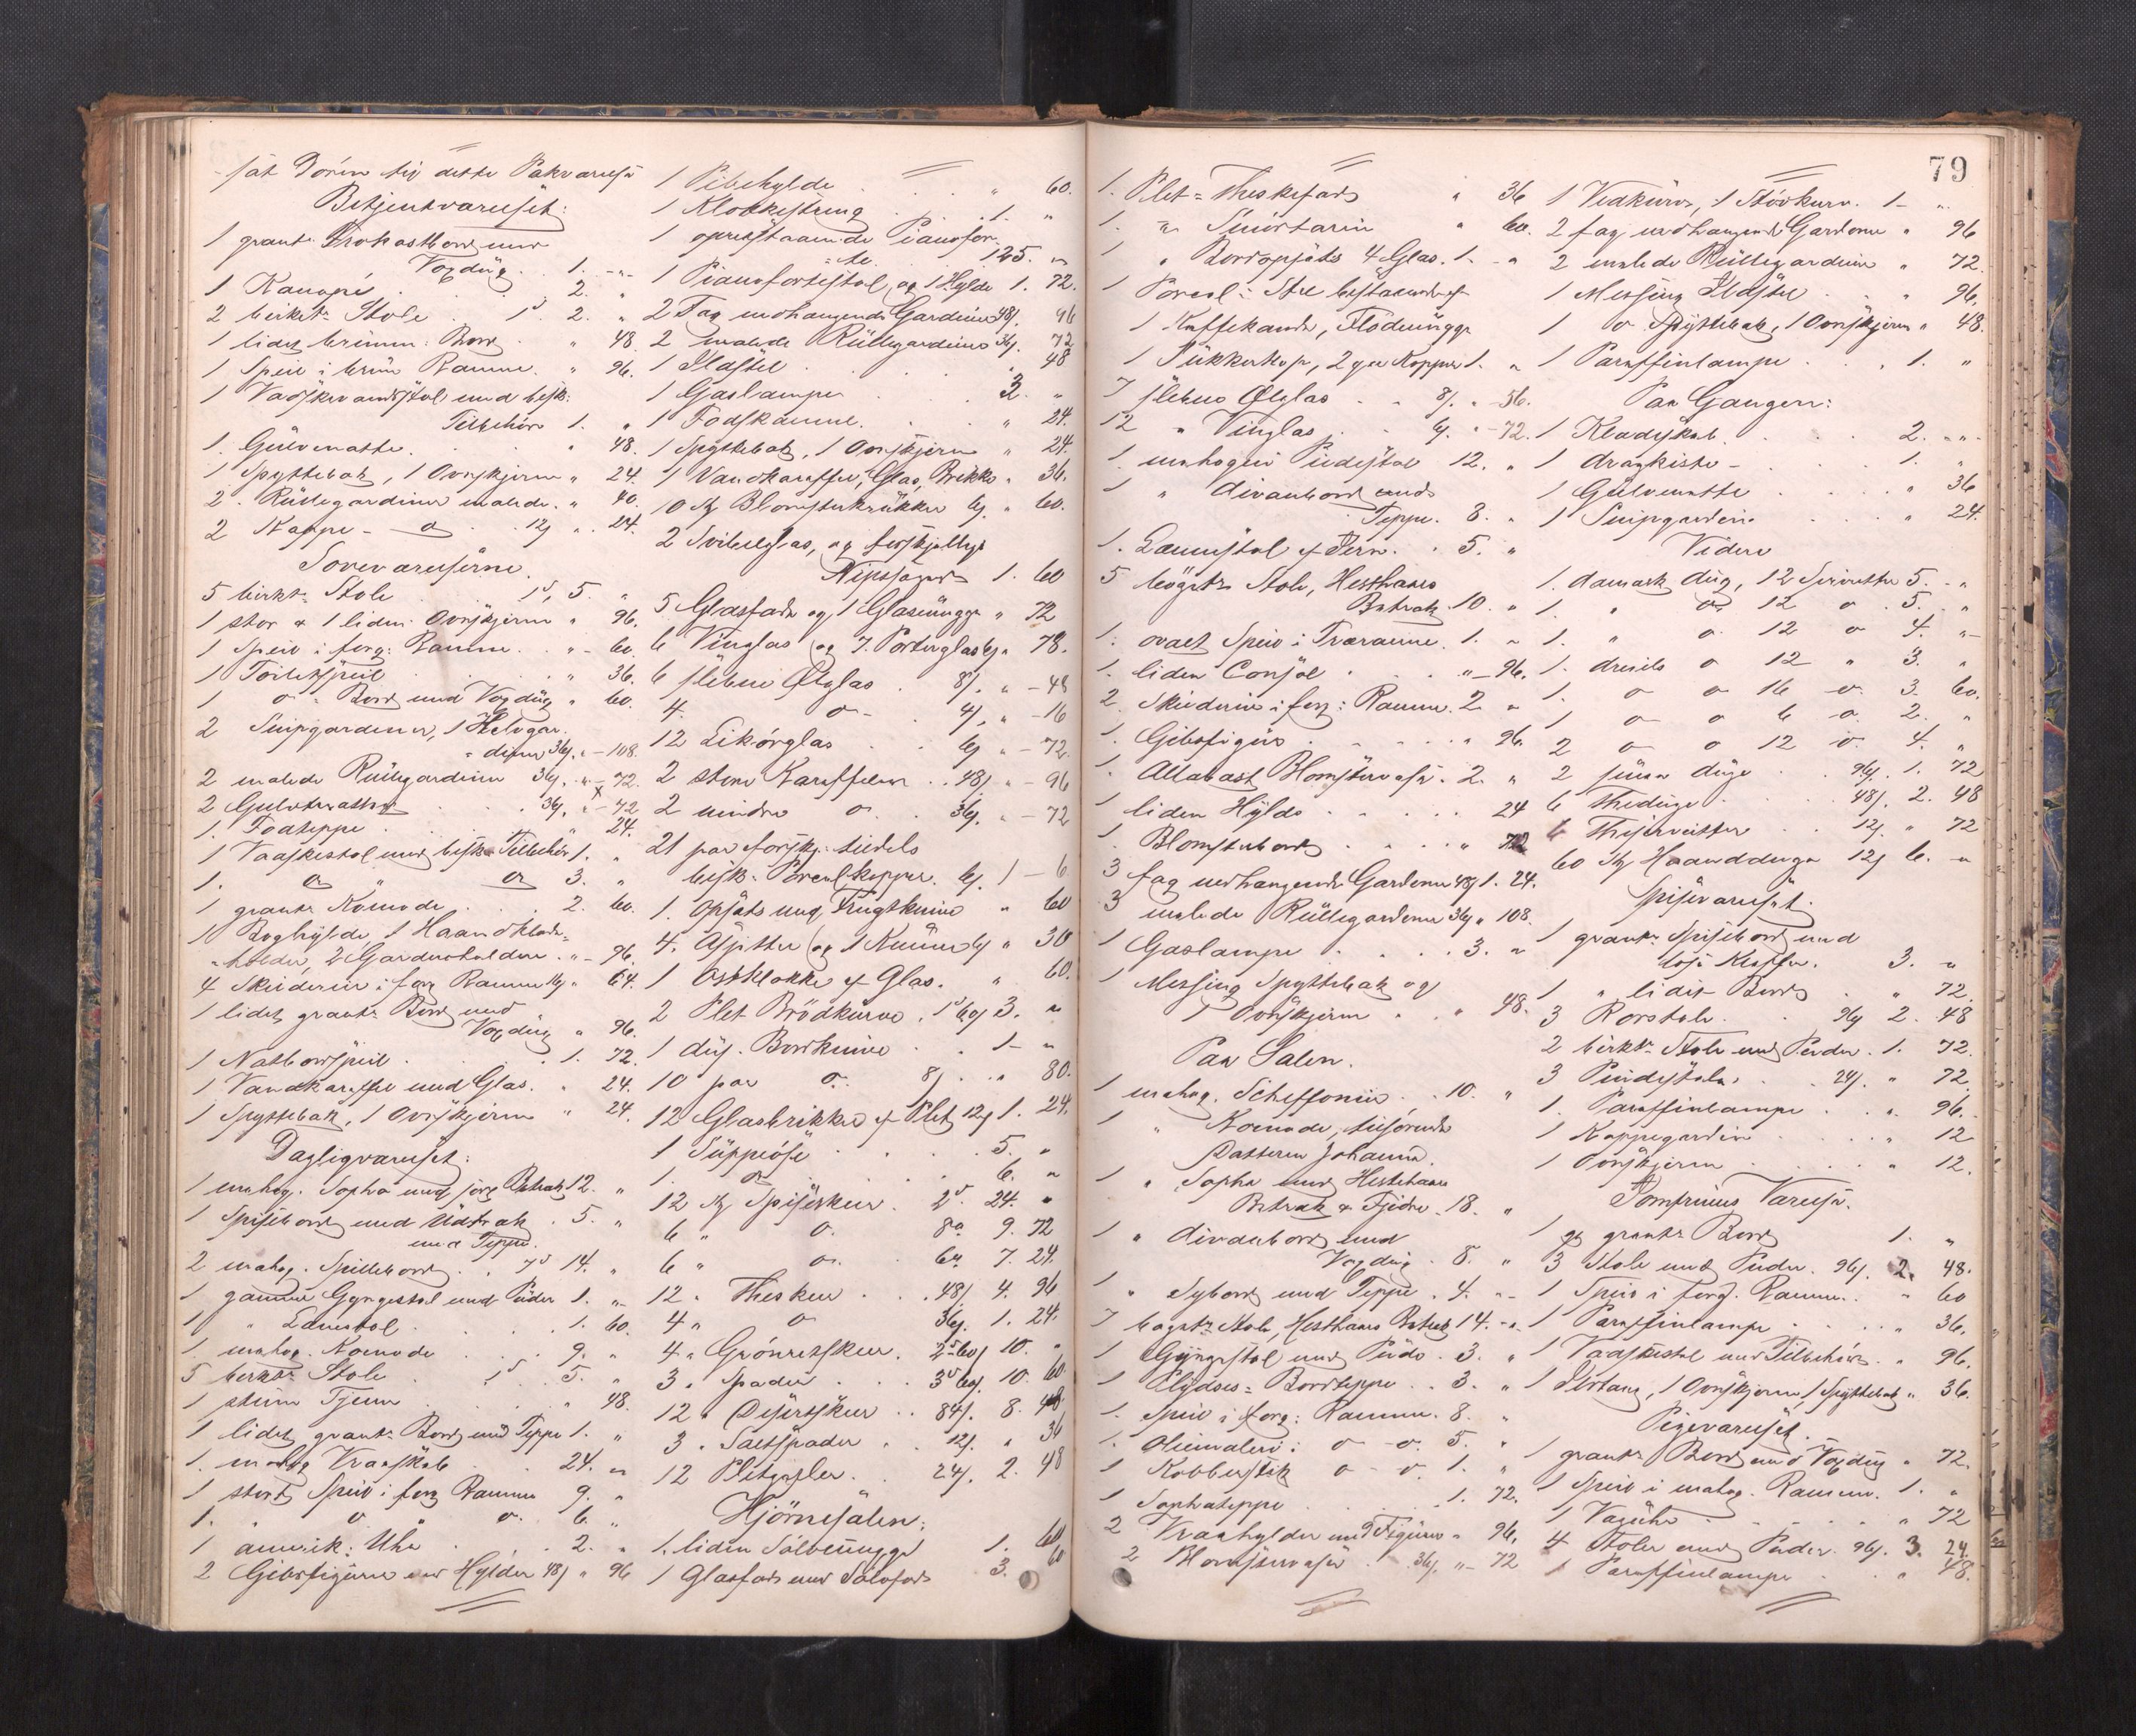 sat Dören til dette Pakværelse
Betjentværelset:
1 granv. Frokostbord med
Voxdug . . 1. - "
1 Kanapé . . . 2. "
2 birket. Stole . 1 d. 2. "
1 lidet brunm: Bord . " 48.
1 Speil i brun Ramme. " 96.
1 Vadskevandsstol med besk:
Tilbehör 1. "
1. Gulvmatte . . " 48.
1 Spyttebak, 1 Ovnskjerm " 24.
2. Rullegardiner malede. " 40.
2 Kappe- o . 12 s " 24.
Soveværelserne.
5 birkt. Stole . 1 d. 5. "
1 stor & 1 liden Ovnskjerm " 96.
1 Speil i forg: Ramme. " - 60.
1 Toiletspeil . . " 36.
1 o- Bord med Voxdug " 60.
2 Snipgardiner, 1 Helgar-
diner 36 s. " - 108.
2 malede Rullegardiner 36 s. " - 72.
2 Gulvmatter . . 36 s. " - 72
1. Fodteppe . . 24.
1 Vaskestol med besk. Tilbehör 1. "
1. o " o 3. "
1 granv. Komode . . 2. 60.
1 Boghylde 1 Haandklæde-
holder, 2 Gardinholdere. " - 96.
4 Skilderier i forg Ramme 16 s " 64.
1 lidet granv. Bord med
Voxdug " 96.
1 Natbordspeil . . 1. 72.
1 Vandkaraffel med Glas. " 24.
1 Spyttebak, 1 Ovnskjerm " 24.
Dagligværelset:
1 mahog. Sopha med sorg Betræk 12. "
1 Spisebord med Udtræk . 5. "
med Teppe.
2 mahog. Spillebord . 7 d 14. "
1 gammel Gyngestol med Puder 1. "
1 " Lænestol . . 1. 60.
1. mahog. Komode . . 9. "
5 birkt. Stole . 1 d 5. "
1 stum Tjener . . " 48.
1 lidet granv. Bord med Teppe 1. "
1. mahog Kraaskab . 24. "
1 stort Speil i forg Ramme 9. "
1. " o o. 6. "
1 amerik: Uhr . . 2. "
2 Gibsfigurer med Hylder 48 s " 96
1 Pibehylde . . " 60.
1 Klokkestreng . . 1. "
1 opretstaaende Pianofor-
te. 125. "
1 Pianofortestol, og 1 Hylde 1. 72.
2 Fag nedhængende Gardiner 48 s. 96
2 malede Rullegardiner 36 s. 72
1 Ildstel . . " 48
1 Gaslampe . . 3. "
1 Fodskammel . . " 24.
1 Spyttebak, 1 Ovnskjerm " 24.
1 Vandkaraffel, Glas, Brikke " 36.
10 St Blomsterkrukker 6 s. " 60.
2 Svibelglas, og forskjellige
Nipssager 1. 60
5 Glasfade og 1 Glasmugge " 72
6 Vinglas og 7. Porterglas 6 s " 78.
6 slebne Ølglas . 8 s. " - 48
4. o - . 4 s. " - 16
12 Likörglas . . 6 s " - 72.
2 store Karaffeler . . 48 s " - 96
2 mindre o . 36 s. " - 72
21 par forskj. tildels
besk. Porcelkopper. 6 s. 1 - 6.
1. Opsats med Frugtknive " 60
4. Asjetter og 1 Kumme 6 s " 30
1 Ostklokke af Glas. " 60.
2 Plet Brödkurve . 1 d 60 s 3. "
1 dus. Bordknive . . 1 - "
10 par o. . 8 s . " 80.
12 Glasbrikker af Plet 12 s 1. 24.
1 Suppeöse . . . 5. "
1. o . . . 6. "
12 St Spiseskeer . 2 d. 24. "
6 " o. 8 o. 9. 72
6 " o . 6 o. 7. 24.
12 " Theskeer . . 48 s 4. 96
4 " o 36 s. 1. 24.
4 " Grönretskeer. 2 d 60 s 10. "
3 " Spader . . 3 d 60 s. 10. 60
12 " Desertskeer . . 84 s. 8. 48
3 " Saltspader . . 12 s. " 36
12 Pletgafler . . 24 s. 2. 48
Hjörnesalen:
1. liden Sölvmugge 1. 60
1 Glasfad med Sölvfod 3. 60
79
1. Plet-Theskefad " 36
1. " Smörtarin " 60.
1 " Bordopsats 4 Glas. 1. - "
1 Porcel: Stel bestaaende af
1 Kaffekande, Flödemugge
1 Sukkerkop, 2 par Kopper 1. "
7 slebne Ølglas . . 8 s. " - 56.
12 " Vinglas . . 6 s. " - 72.
1. mahogni Piedestal 12. "
1 " Divanbord med
Teppe. 8. "
1. Lænestol af Jern . . 5. "
5 bögetr. Stole, Hestehaars
Betræk. 10. "
1. ovalt Speil i Træramme. 1. "
1. liden Consol . . " - 96.
2. Skilderier i forg: Ramme. 2 "
1. Gibsfigur . . . " 96.
1. Allabast Blomstervase . 2. "
1 liden Hylde . . . 24
1. Blomsterbord . . . " 72
3 fag nedhængende Gardiner 48 s 1. 24.
3 malede Rullegardiner 36 s " 108.
1 Gaslampe . . . 3. "
1 Messing Spyttebak og
1 Ovnskjerm . . " 48.
Paa Salen.
1 mahog. Scheffonier . . 10. "
1 " Komode, tilhörende
Datteren Johanna.
1 " Sopha med Hestehaars
Betræk & Fjedre . 18. "
1 " Divanbord med
Voxdug . 8. "
1 " Sybord med Teppe . 4. - "
7 bögetr. Stole, Hesthaars Betræk 14. - "
1 Gyngestol med Pude . 3. "
1 Plydses-Bordteppe . . 3. "
1. Speil i forg: Ramme. 8. "
1. Oliemaleri i o - o. 5. "
1 Kobberstik o - o. 1. "
1 Sophateppe . . . 1. 72.
2 Kraahylder med Figurer " 96.
2 Blomstervaser . 36 s. " - 72
1 Vedkurv, 1 Stövkurv. 1 - "
2 fag nedhængende Gardiner " 96
2 malede Rullegardiner " 72.
1 Messing Ildstel . . " 96.
1 o Spyttebak, 1 Ovnskjerm " 48.
1 Paraffinlampe . . 1. "
Paa Gangen:
1 Klædeskab . . . 2. "
1 Dragkiste - . . . 1. "
1 Gulvmatte . . . " 36
1 Snipgardin . . . " 24.
Videre
1. damask Dug, 12 Servietter 5. - "
1. " o 12 o . 5. "
1. " o 12 o 4. "
1. dreiels o 12 " 3. "
1. o o 16 o. 3. 60.
1 o o 6 o. 2. "
2 o o 12 o. 4. "
2 smaa Duge . . 96 s. 1. 72
6 Theduge . . . 48 s. 2. 48
6 Theservietter . . 12 s. " 72
60 St Haandduge 12 s 6. "
Spiseværelset.
1 granv. Spisebord med
löse Klapper. 3. "
1 " lidet Bord . " 72.
3 Rorstole . . 96 s 2. 48
2 birkt. Stole med Puder . 1. 72.
3 Pindestole . . 24 s. " 72.
1. Paraffinlampe . . " 96.
1 Kappegardin . . . " 12
1 Ovnskjerm . . . " 12.
Jomfruens Værelse.
1 gl granv. Bord 1. "
3 Stole med Puder. 96 s. 2. 48.
1 Speil i forg. Ramme. . " 60
1 Paraffinlampe . . . " 36.
1 Vaskestel med Tilbehör . " 96.
1 Ildtang, 1 Ovnskjerm, 1 Spyttebak " 36.
Pigeværelset.
1 granv. Bord med Voxdug " 72.
1 Speil i mahog. Ramme. 1. "
1 Væguhr . . . " 72
4 Stoler med Puder. 96 s. 3. 24.
1 Paraffinlampe . . " 48.